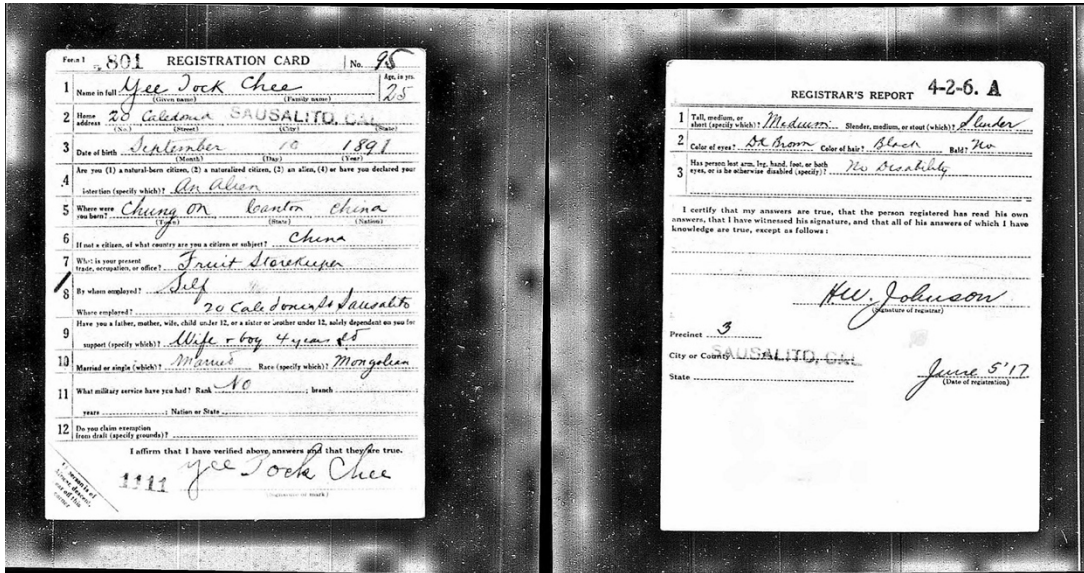 Form 1 801 REGISTRATION CARD No. 95
1 Name in full Yee Tock Chee Age, in yrs. 25
(Given name) (Family name)
2 Home address 20 Caledonia SAUSALITO, CAL
(No.) (Street) (City) (State)
3 Date of birth September 10 1891
(Month) (Day) (Year)
4 Are you (1) a natural-born citizen, (2) a naturalized citizen, (3) an alien, (4) or have you declared your
intention (specify which)? An Alien
5 Where were you born? Chung On Canton China
(Town) (State) (Nation)
6 If not a citizen, of what country are you a citizen or subject? China
7 What is your present trade, occupation, or office? Fruit Storekeeper
8 By whom employed? Self
Where employed? 20 Caledonia St Sausalito
9 Have you a father, mother, wife, child under 12, or a sister or brother under 12, solely dependent on you for
support (specify which)? Wife + boy 4 years old
10 Married or single (which)? Married Race (specify which)? Mongolian
11 What military service have you had? Rank No ; branch
years ; Nation or State
12 Do you claim exemption
from draft (specify grounds)?
I affirm that I have verified above answers and that they are true.
1111 Yee Tock Chee
(Signature or mark)
If person is of
African descent,
tear off this
corner
REGISTRAR'S REPORT 4-2-6. A
1 Tall, medium, or short (specify which)? Medium Slender, medium, or stout (which)? Slender
2 Color of eyes? Dk Brown Color of hair? Black Bald? No
3 Has person lost arm, leg, hand, foot, or both
eyes, or is he otherwise disabled (specify)? No Disability
I certify that my answers are true, that the person registered has read his own
answers, that I have witnessed his signature, and that all of his answers of which I have
knowledge are true, except as follows:
H.W. Johnson
(Signature of registrar)
Precinct 3
City or County SAUSALITO, CAL
State June 5 '17
(Date of registration)